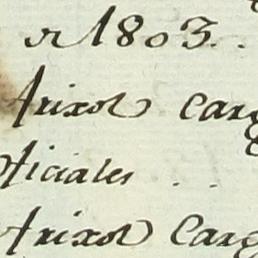 1803.
Trixol Carg
oficiales
Trixol Carg